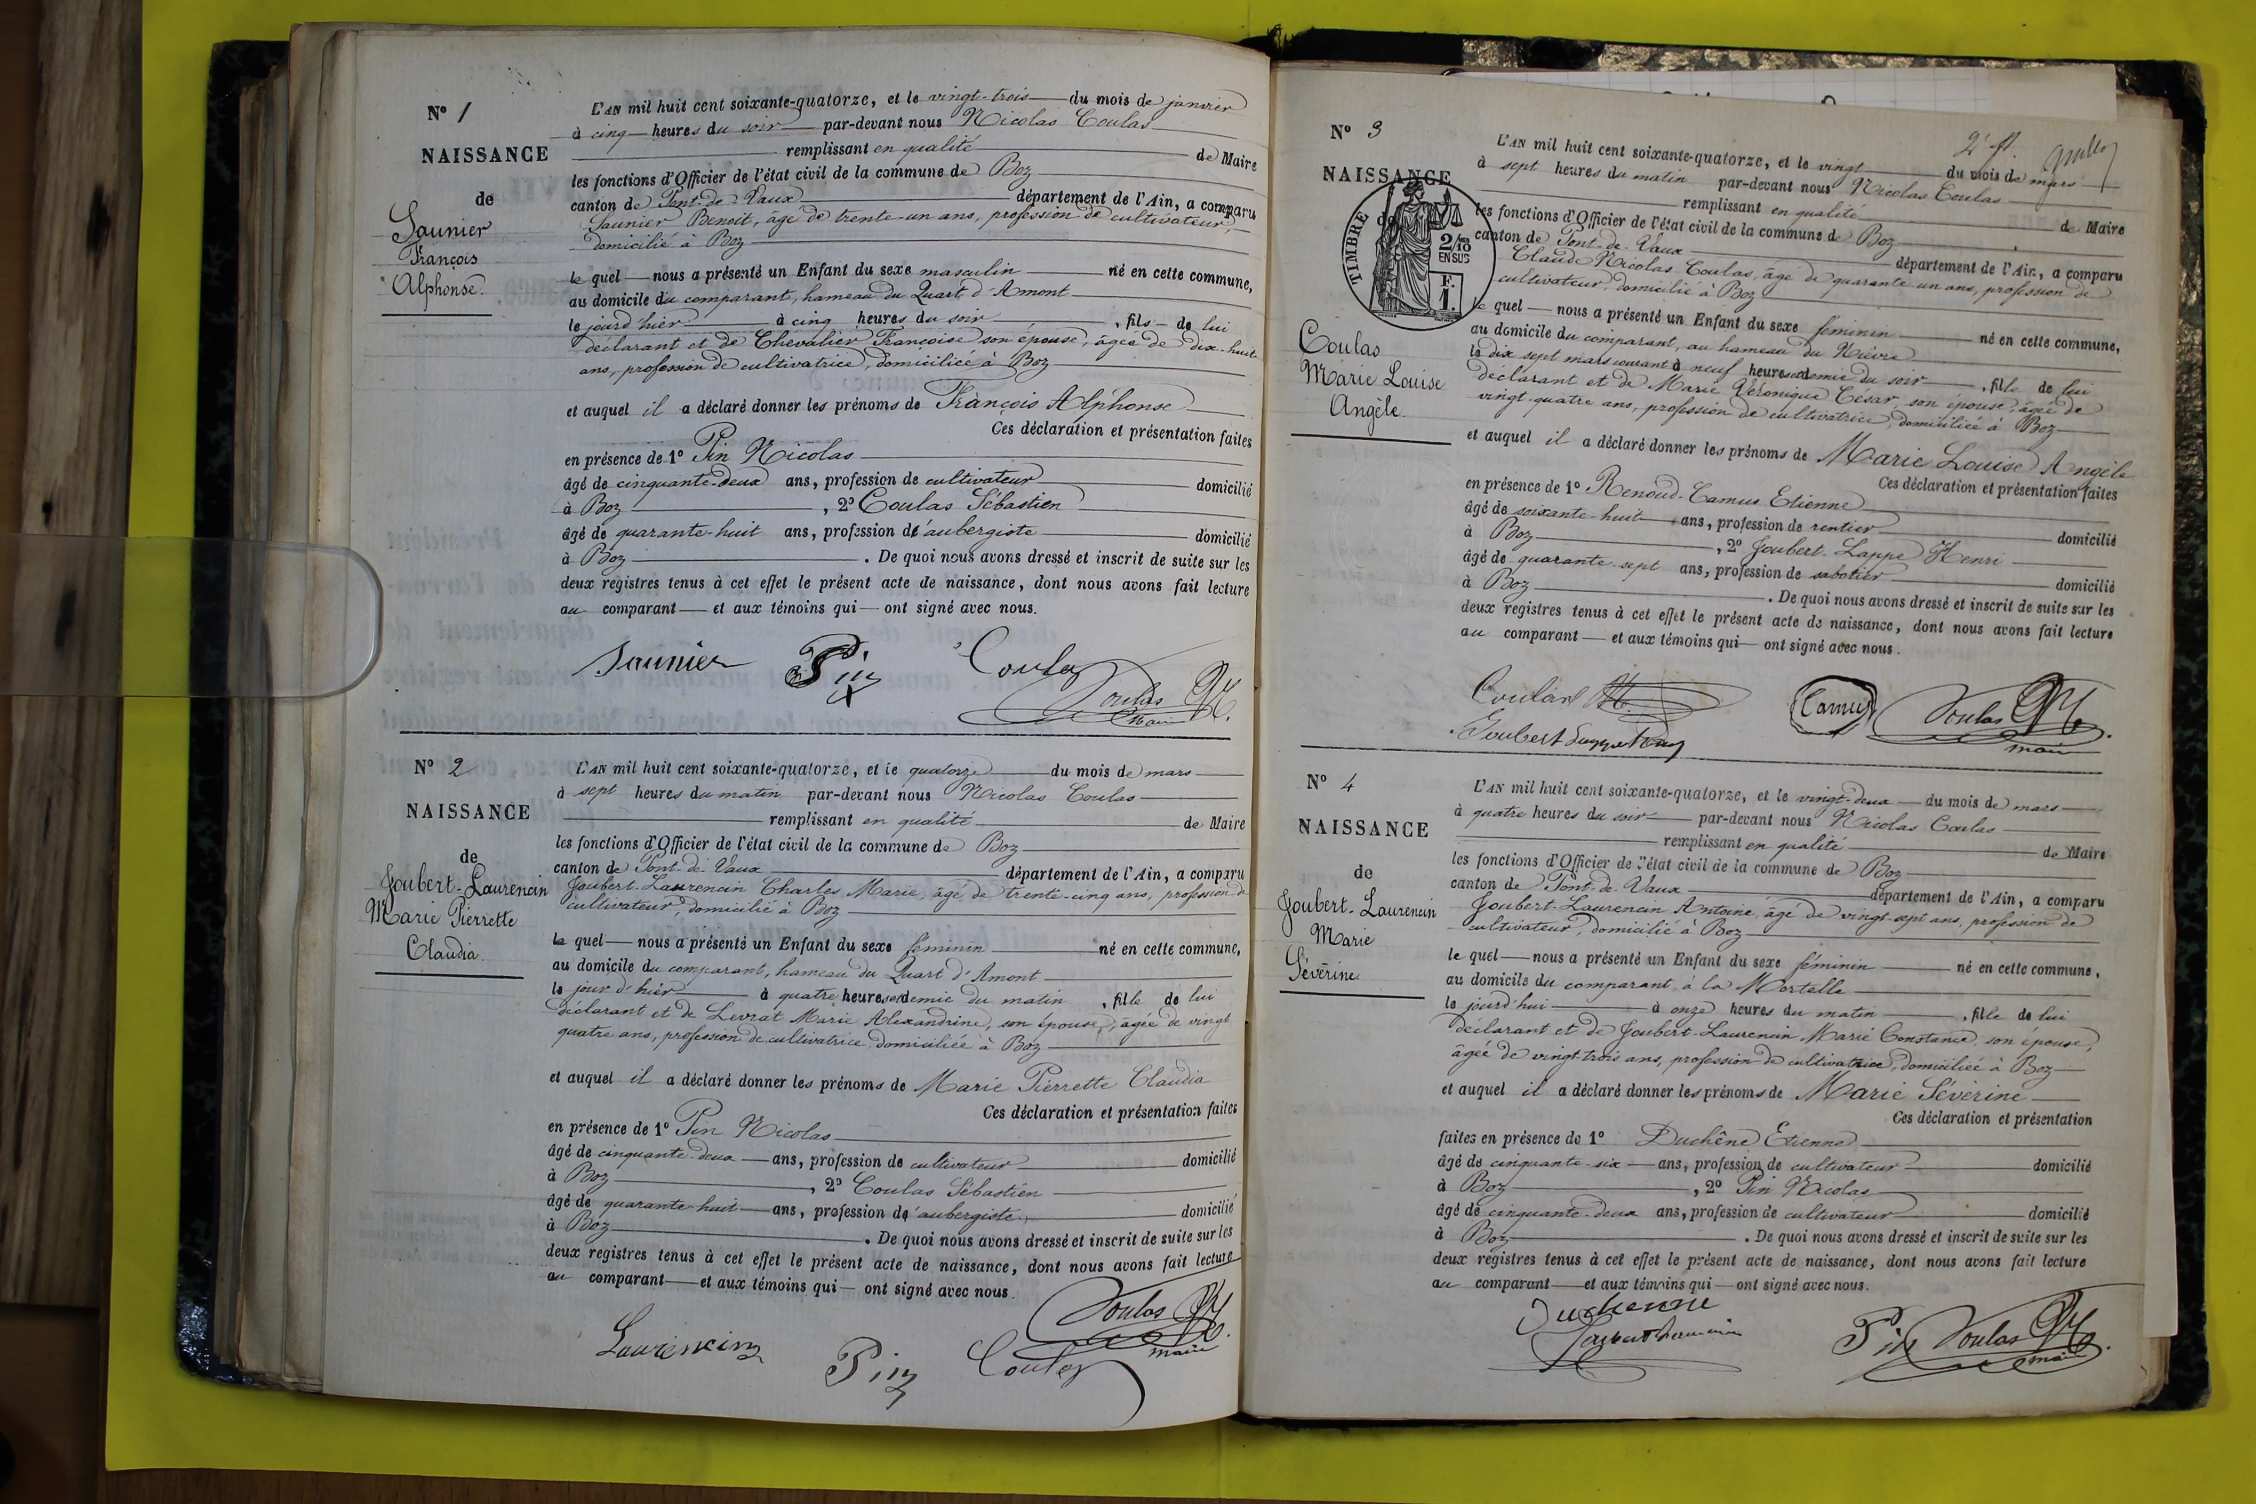 N° 1
NAISSANCE
de
Saunier
François
Alphonse.
L'AN mil huit cent soixante-quatorze, et le vingt-trois du mois de janvier
à cinq heures du soir par-devant nous Nicolas Coulas
remplissant en qualité de Maire
les fonctions d'Officier de l'état civil de la commune de Boz
canton de Pont-de-Vaux département de l'Ain, a comparu
Saunier Benoit, âgé de trente-un ans, profession de cultivateur,
domicilié à Boz
le quel nous a présenté un Enfant du sexe masculin né en cette commune,
au domicile du comparant, hameau du Quart d'Amont
le jourd'hier à cinq heures du soir, fils de lui
déclarant et de Chevalier Françoise son épouse, âgée de dix-huit
ans, profession de cultivatrice, domiciliée à Boz
et auquel il a déclaré donner les prénoms de François Alphonse
Ces déclaration et présentation faites
en présence de 1° Pin Nicolas
âgé de cinquante-deux ans, profession de cultivateur domicilié
à Boz, 2° Coulas Sébastien
âgé de quarante-huit ans, profession d'aubergiste domicilié
à Boz. De quoi nous avons dressé et inscrit de suite sur les
deux registres tenus à cet effet le présent acte de naissance, dont nous avons fait lecture
au comparant et aux témoins qui ont signé avec nous.
Saunier Pin Coulas
Coulas N
Maire
N° 2
NAISSANCE
de
Joubert-Laurencin
Marie Pierrette
Claudia.
L'AN mil huit cent soixante-quatorze, et le quatorze du mois de mars
à sept heures du matin par-devant nous Nicolas Coulas
remplissant en qualité de Maire
les fonctions d'Officier de l'état civil de la commune de Boz
canton de Pont-de-Vaux département de l'Ain, a comparu
Joubert-Laurencin Charles Marie, âgé de trente-cinq ans, profession de
cultivateur, domicilié à Boz
le quel nous a présenté un Enfant du sexe féminin né en cette commune,
au domicile du comparant, hameau du Quart d'Amont
le jour d'hier à quatre heures et demie du matin, fille de lui
déclarant et de Levrat Marie Alexandrine, son épouse, âgée de vingt
quatre ans, profession de cultivatrice, domiciliée à Boz
et auquel il a déclaré donner les prénoms de Marie Pierrette Claudia
Ces déclaration et présentation faites
en présence de 1° Pin Nicolas
âgé de cinquante-deux ans, profession de cultivateur domicilié
à Boz, 2° Coulas Sébastien
âgé de quarante-huit ans, profession d'aubergiste, domicilié
à Boz. De quoi nous avons dressé et inscrit de suite sur les
deux registres tenus à cet effet le présent acte de naissance, dont nous avons fait lecture
au comparant et aux témoins qui ont signé avec nous.
Coulas N
Maire
Laurencin Pin Coulas
N° 3
NAISSANCE
de
TIMBRE
2/10
EN SUS
F.
1.
Coulas
Marie Louise
Angèle.
2e ft.
L'AN mil huit cent soixante-quatorze, et le vingt du mois de mars
à sept heures du matin par-devant nous Nicolas Coulas
remplissant en qualité de Maire
les fonctions d'Officier de l'état civil de la commune de Boz
canton de Pont-de-Vaux département de l'Ain, a comparu
Claude Nicolas Coulas, âgé de quarante un ans, profession de
cultivateur, domicilié à Boz
le quel nous a présenté un Enfant du sexe féminin né en cette commune,
au domicile du comparant, au hameau du Nièvre
le dix sept mars courant à neuf heures et demie du soir, fille de lui
déclarant et de Marie Véronique César son épouse, âgée de
vingt-quatre ans, profession de cultivatrice, domiciliée à Boz
et auquel il a déclaré donner les prénoms de Marie Louise Angèle
Ces déclaration et présentation faites
en présence de 1° Renoud-Camus Etienne
âgé de soixante-huit ans, profession de rentier domicilié
à Boz, 2° Joubert-Lappe Henri
âgé de quarante-sept ans, profession de sabotier domicilié
à Boz. De quoi nous avons dressé et inscrit de suite sur les
deux registres tenus à cet effet le présent acte de naissance, dont nous avons fait lecture
au comparant et aux témoins qui ont signé avec nous.
Coulas Camus Coulas N
Joubert Maire
N° 4
NAISSANCE
de
Joubert-Laurencin
Marie
Séverine
L'AN mil huit cent soixante-quatorze, et le vingt-deux du mois de mars
à quatre heures du soir par-devant nous Nicolas Coulas
remplissant en qualité de Maire
les fonctions d'Officier de l'état civil de la commune de Boz
canton de Pont-de-Vaux département de l'Ain, a comparu
Joubert-Laurencin Antoine, âgé de vingt-sept ans, profession de
cultivateur, domicilié à Boz
le quel nous a présenté un Enfant du sexe féminin né en cette commune,
au domicile du comparant, à la Mortelle
le jourd'hui à onze heures du matin, fille de lui
déclarant et de Joubert-Laurencin Marie Constance, son épouse,
âgée de vingt-trois ans, profession de cultivatrice, domiciliée à Boz
et auquel il a déclaré donner les prénoms de Marie Séverine
Ces déclaration et présentation
faites en présence de 1° Duchêne Etienne
âgé de cinquante-six ans, profession de cultivateur domicilié
à Boz, 2° Pin Nicolas
âgé de cinquante-deux ans, profession de cultivateur domicilié
à Boz. De quoi nous avons dressé et inscrit de suite sur les
deux registres tenus à cet effet le présent acte de naissance, dont nous avons fait lecture
au comparant et aux témoins qui ont signé avec nous.
Duchenne
Joubert Laurencin
Pin Coulas N
Maire